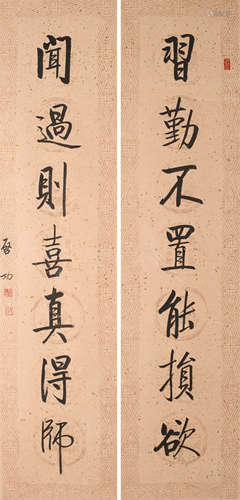 習勤不置能損欲
聞過則喜真得師
啓功